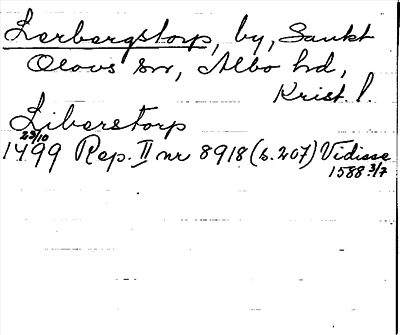 Lerbergstorp, by, Sankt
Olovs sn, Albo hd,
Krist. l.
Liberstorp
23/10
1499 Rep. II nr 8918 (s. 207) Vidisse
1588 3/7